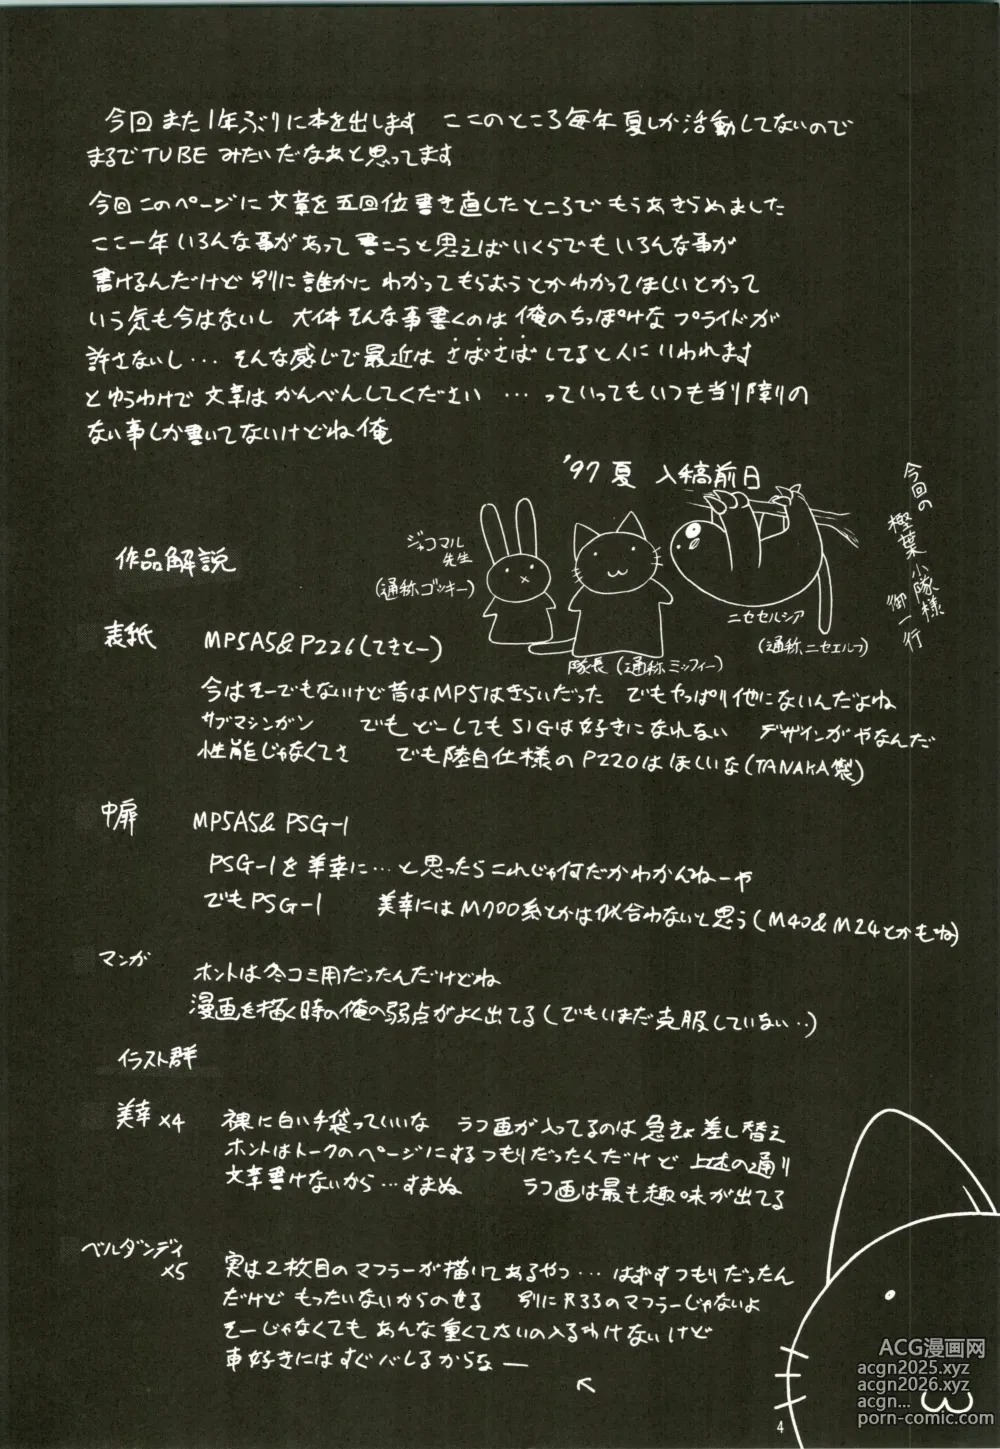 今回また1年ぶりに本を出します ここのところ毎年夏しか活動してないので
まるでTUBEみたいだなぁと思ってます
今回このページに文章を五回位書き直したところでもうあきらめました
ここ一年いろんな事があって書こうと思えばいくらでもいろんな事が
書けるんだけど別に誰かにわかってもらおうとかわかってほしいとかって
いう気も今はないし 大体そんな事書くのは俺のちっぽけなプライドが
許さないし… そんな感じで最近はさばさばしてると人にいわれます
とゆうわけで文章はかんべんしてください …っていってもいつも当り障りの
ない事しか書いてないけどね俺
'97夏 入稿前日
今回の
樫葉小隊様
御一行
ジャコマル
先生
(通称ゴッキー)
ニセセルシア
(通称ニセエルフ)
隊長(通称ミッフィー)
作品解説
表紙 MP5A5&P226(てきとー)
今はそーでもないけど昔はMP5はきらいだった でもやっぱり他にないんだよね
サブマシンガン でもどーしてもSIGは好きになれない デザインがやなんだ
性能じゃなくてさ でも陸自仕様のP220はほしいな(TANAKA製)
中扉 MP5A5&PSG-1
PSG-1を美幸に…と思ったらこれじゃ何だかわかんねーや
でもPSG-1 美幸にはM700系とかは似合わないと思う(M40&M24とかもね)
マンガ ホントは冬コミ用だったんだけどね
漫画を描く時の俺の弱点がよく出てる(でもいまだ克服していない‥)
イラスト群
美幸×4 裸に白い手袋っていいな ラフ画が入ってるのは急きょ差し替え
ホントはトークのページにするつもりだったんだけど 上述の通り
文章書けないから…すまぬ ラフ画は最も趣味が出てる
ベルダンディ
×5
実は2枚目のマフラーが描いてあるやつ… はずすつもりだったん
だけどもったいないからのせる 別にR33のマフラーじゃないよ
そーじゃなくてもあんな重くてださいの入るわけないけど
車好きにはすぐバレるからなー
4
ACG漫画网
acgn2025.xyz
acgn2026.xyz
acgn...
porn-comic.com